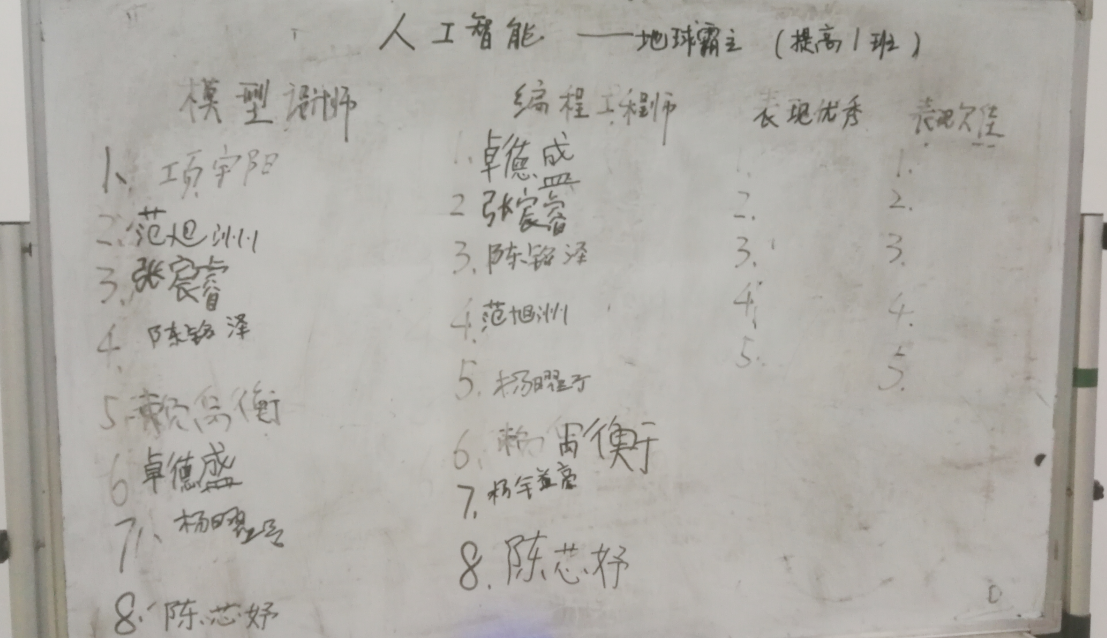 人工智能 ——地球霸主 (提高1班)
模型设计师 编程工程师 表现优秀 表现欠佳
1. 项宇阳 1. 卓德盛 1. 1.
2. 范旭洲 2 张宸睿 2. 2.
3. 张宸睿 3. 陈铭泽 3. 3.
4. 陈铭泽 4. 范旭洲 4. 4.
5. 赖禹衡 5. 杨曜 5. 5.
6 卓德盛 6. 赖禹衡
7. 杨曜 7. 杨
8. 陈芯妤 8. 陈芯妤